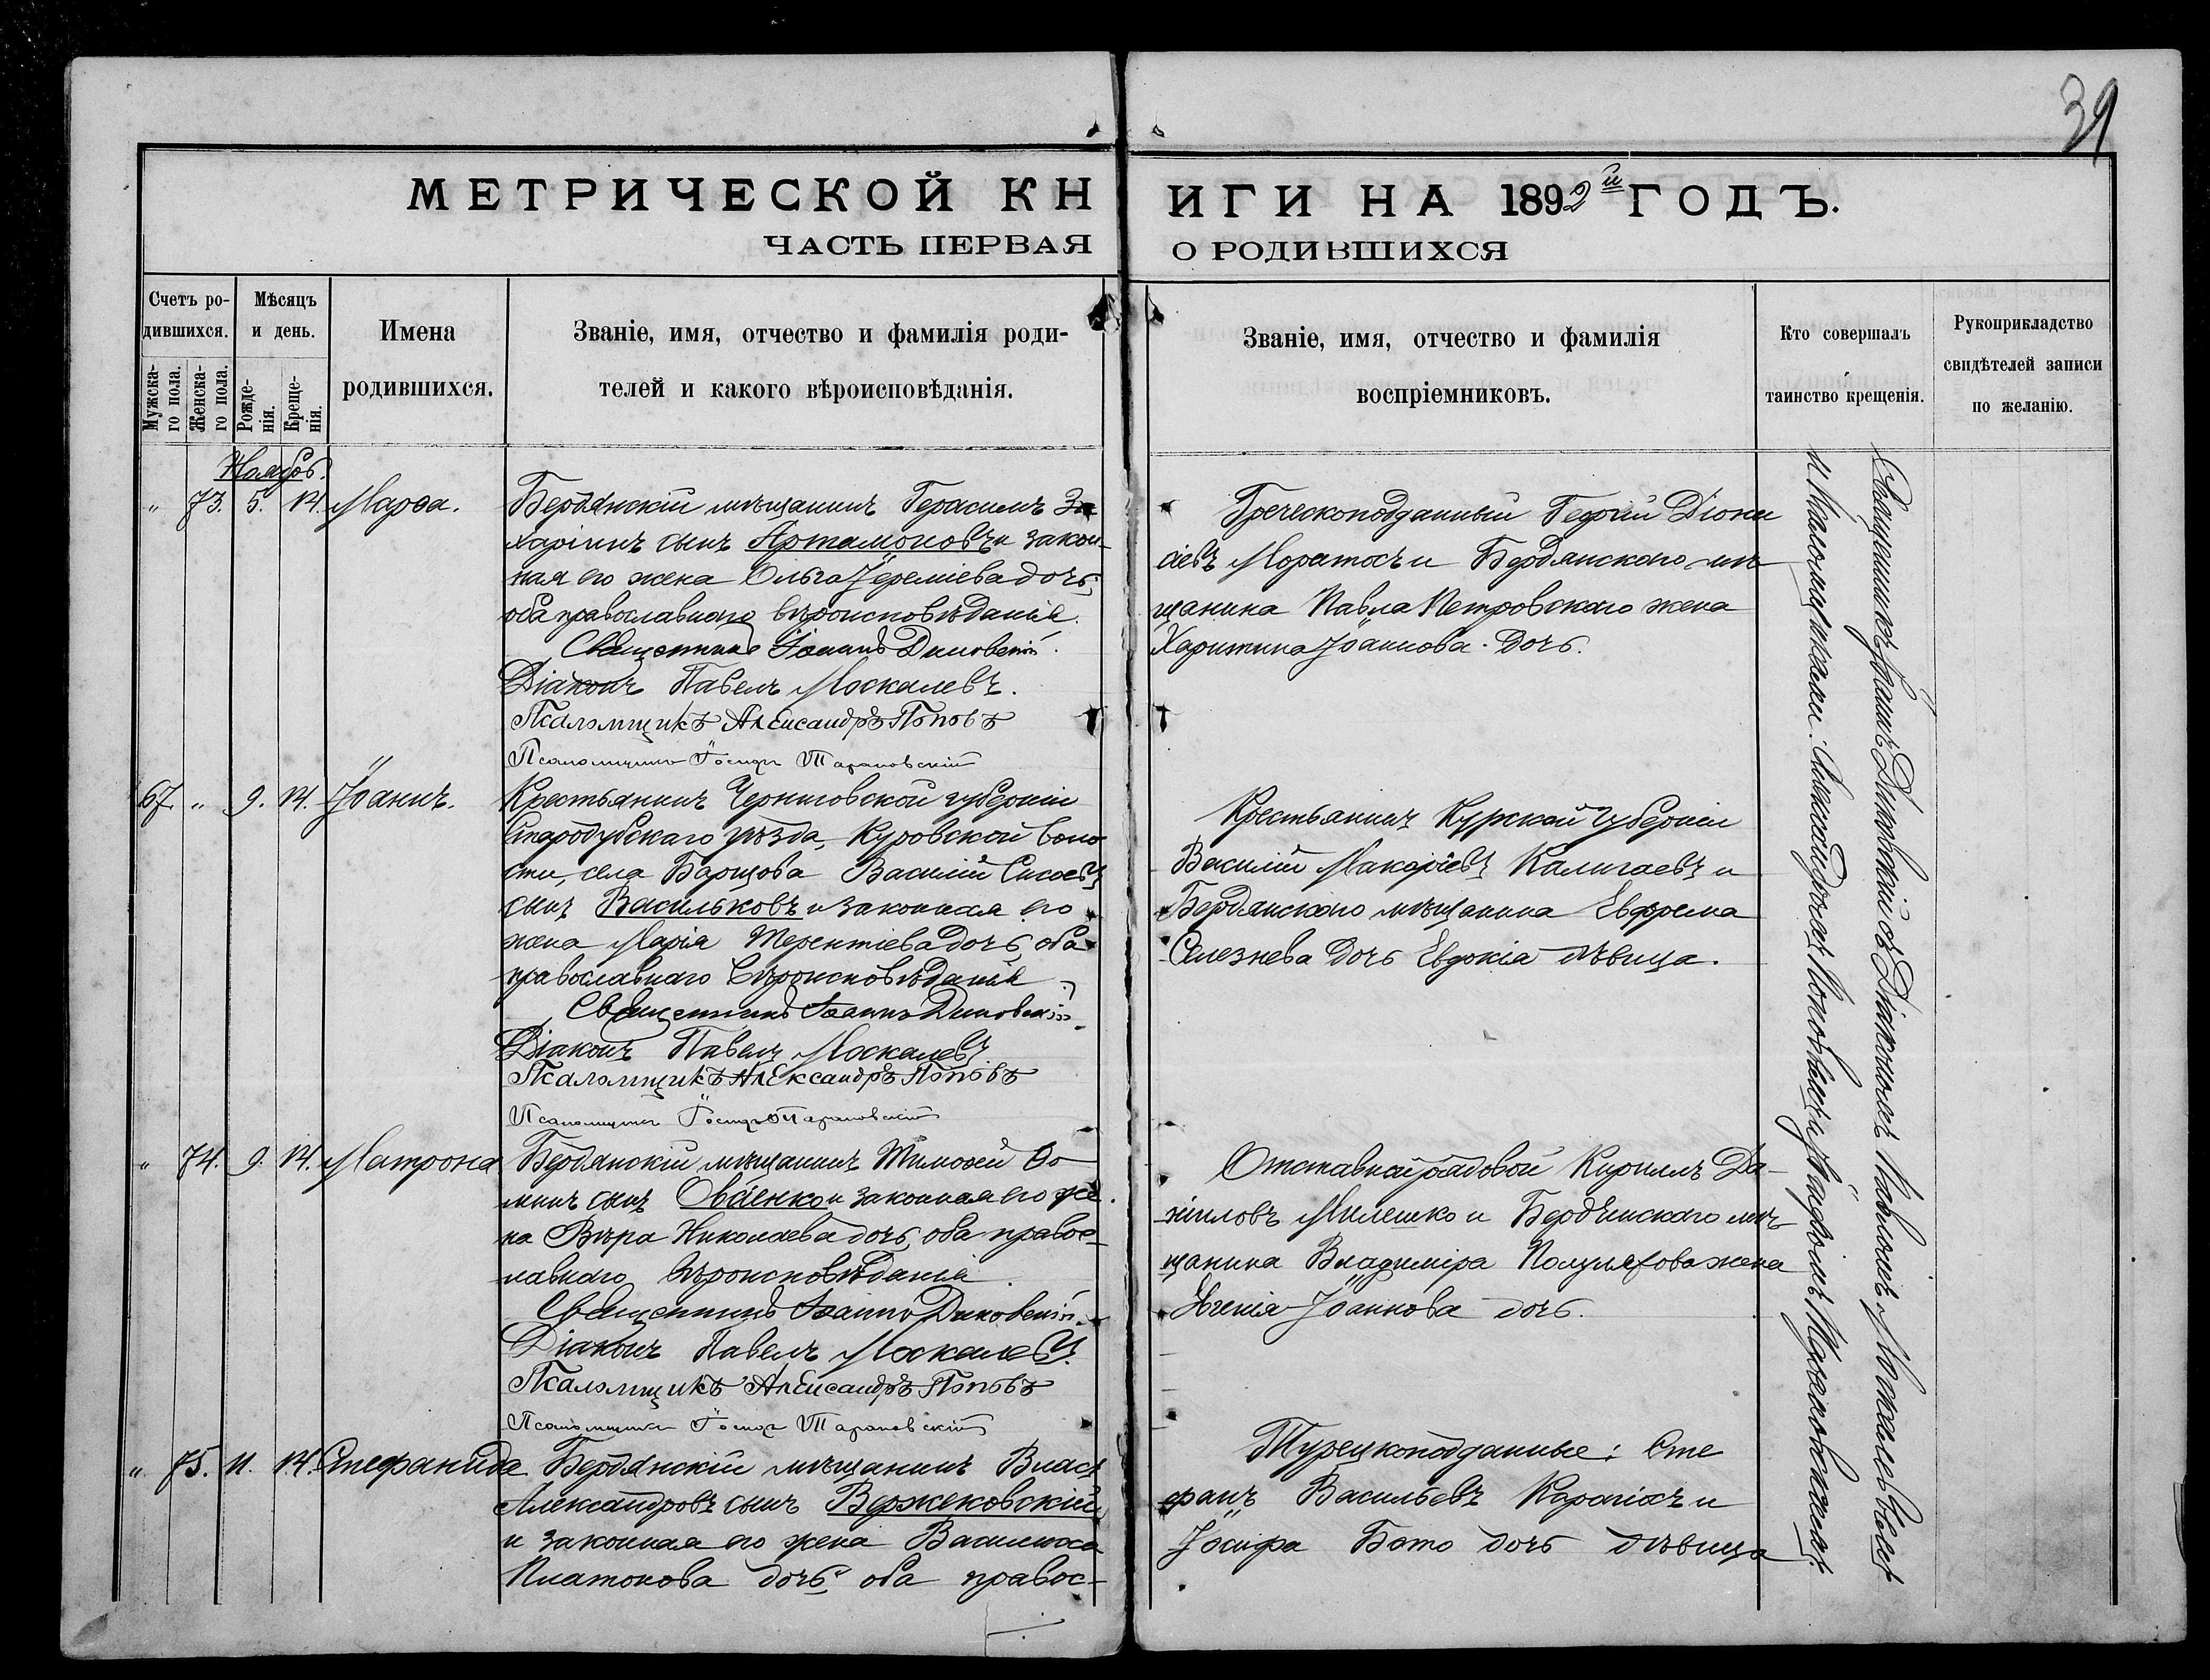 39
МЕТРИЧЕСКОЙ КНИГИ НА 1892й ГОДЪ.
ЧАСТЬ ПЕРВАЯ О РОДИВШИХСЯ
Счетъ ро-
дившихся.
Мужска-
го пола.
Женска-
го пола.
Мѣсяцъ
и день.
Рожде-
нія.
Креще-
нія.
Имена
родившихся.
Званіе, имя, отчество и фамилія роди-
телей и какого вѣроисповѣданія.
Званіе, имя, отчество и фамилія
воспріемниковъ.
Кто совершалъ
таинство крещенія.
Рукоприкладство
свидѣтелей записи
по желанію.
Ноябрь.
" 73. 5. 14. Марѳа.
Бердянскій мѣщанинъ Герасимъ За
харіинъ сынъ Артамоновъ и закон-
ная его жена Ольга Іереміева дочь,
оба православнаго вѣроисповѣданія.
Священникъ Іоаннъ Диковскій.
Діаконъ Павелъ Москалевъ.
Псаломщикъ Александръ Поповъ
Псаломщикъ Іосифъ Тарановскій
Греческоподданный Георгій Діони
сіевъ Моратосъ и Бердянскаго мѣ
щанина Павла Петровскаго жена
Харитина Іоаннова дочь.
67. " 9. 14. Іоаннъ.
Крестьянинъ Черниговской губерніи
Стародубскаго уѣзда, Куровской воло
сти, села Борщова Василій Сисоевъ
сынъ Васильковъ и законная его
жена Марія Терентіева дочь, оба
православнаго вѣроисповѣданія.
Священникъ Іоаннъ Диковскій.
Діаконъ Павелъ Москалевъ
Псаломщикъ Александръ Поповъ
Псаломщикъ Іосифъ Тарановскій
Крестьянинъ Курской губерніи
Василій Макаріевъ Калигаевъ и
Бердянскаго мѣщанина Евфрема
Селезнева дочь Евдокія дѣвица.
" 74. 9. 14. Матрона
Бердянскій мѣщанинъ Тимоѳей Ѳо
минъ сынъ Овсіенко и законная его же
на Вѣра Николаева дочь, оба правос-
лавнаго вѣроисповѣданія.
Священникъ Іоаннъ Диковскій.
Діаконъ Павелъ Москалевъ.
Псаломщикъ Александръ Поповъ
Псаломщикъ Іосифъ Тарановскій
Отставной рядовой Кириллъ Да-
ніиловъ Милешко и Бердянскаго мѣ-
щанина Владиміра жена
Евгенія Іоаннова дочь.
" 75. 11. 14. Стефанида
Бердянскій мѣщанинъ Власъ
Александровъ сынъ Вержековскій
и законная его жена Василисса
Платонова дочь, оба правос-
Турецкоподданные: Сте
фанъ Васильевъ Карагіосъ и
Іосифа Бото дочь дѣвица
Священникъ Іоаннъ Диковскій съ Діакономъ Павломъ Москалевымъ
и Псаломщиками: Александромъ Поповымъ и Іосифомъ Тарановскимъ.